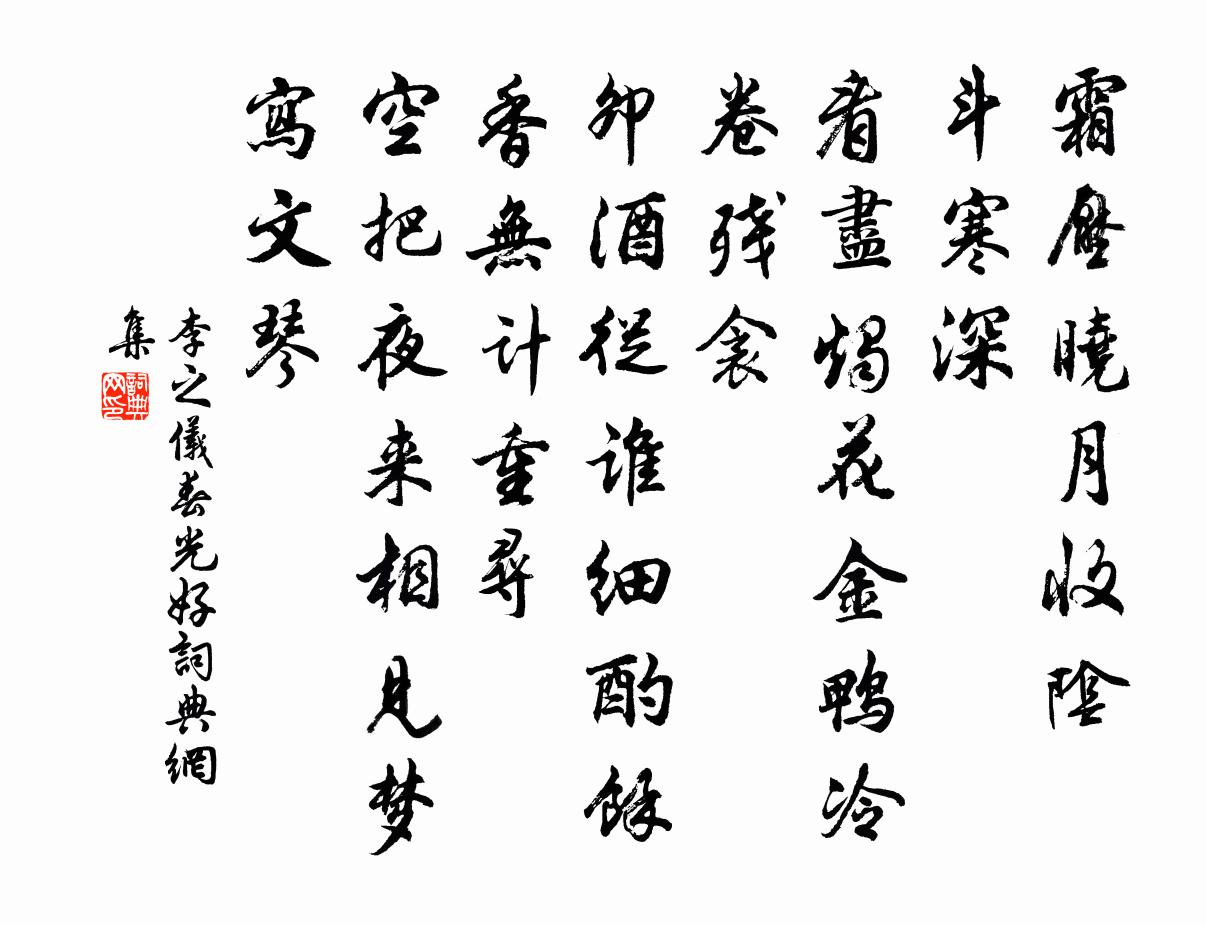 霜壓曉月收陰
斗寒深
看盡燭花金鴨冷
卷残衾
卯酒從誰細酌餘
香無計重尋
空把夜来相見梦
寫文琴
李之儀春光好詞典網
集
詞典
网印